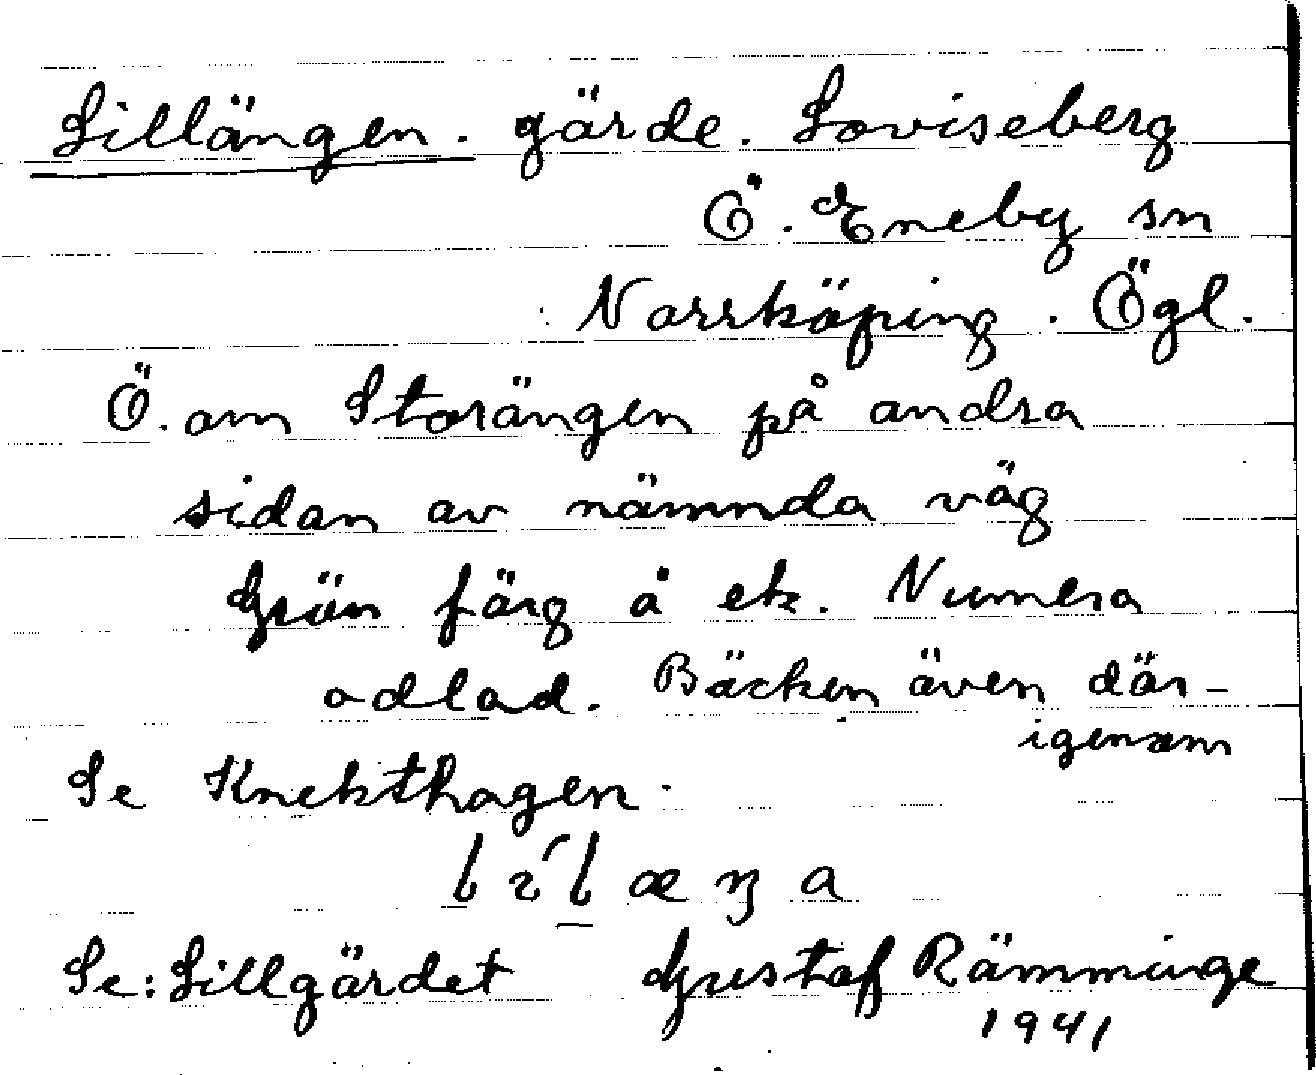 Lillängen. gärde. Loviseberg
Ö. Eneby sn
Norrköping. Ögl.
Ö. om Storängen på andra
sidan av nämnda väg
Grön färg å ek. Numera
odlad. Bäcken även där-
igenom
Se Knekthagen.
Se: Lillgärdet Gustaf Rämminge
1941